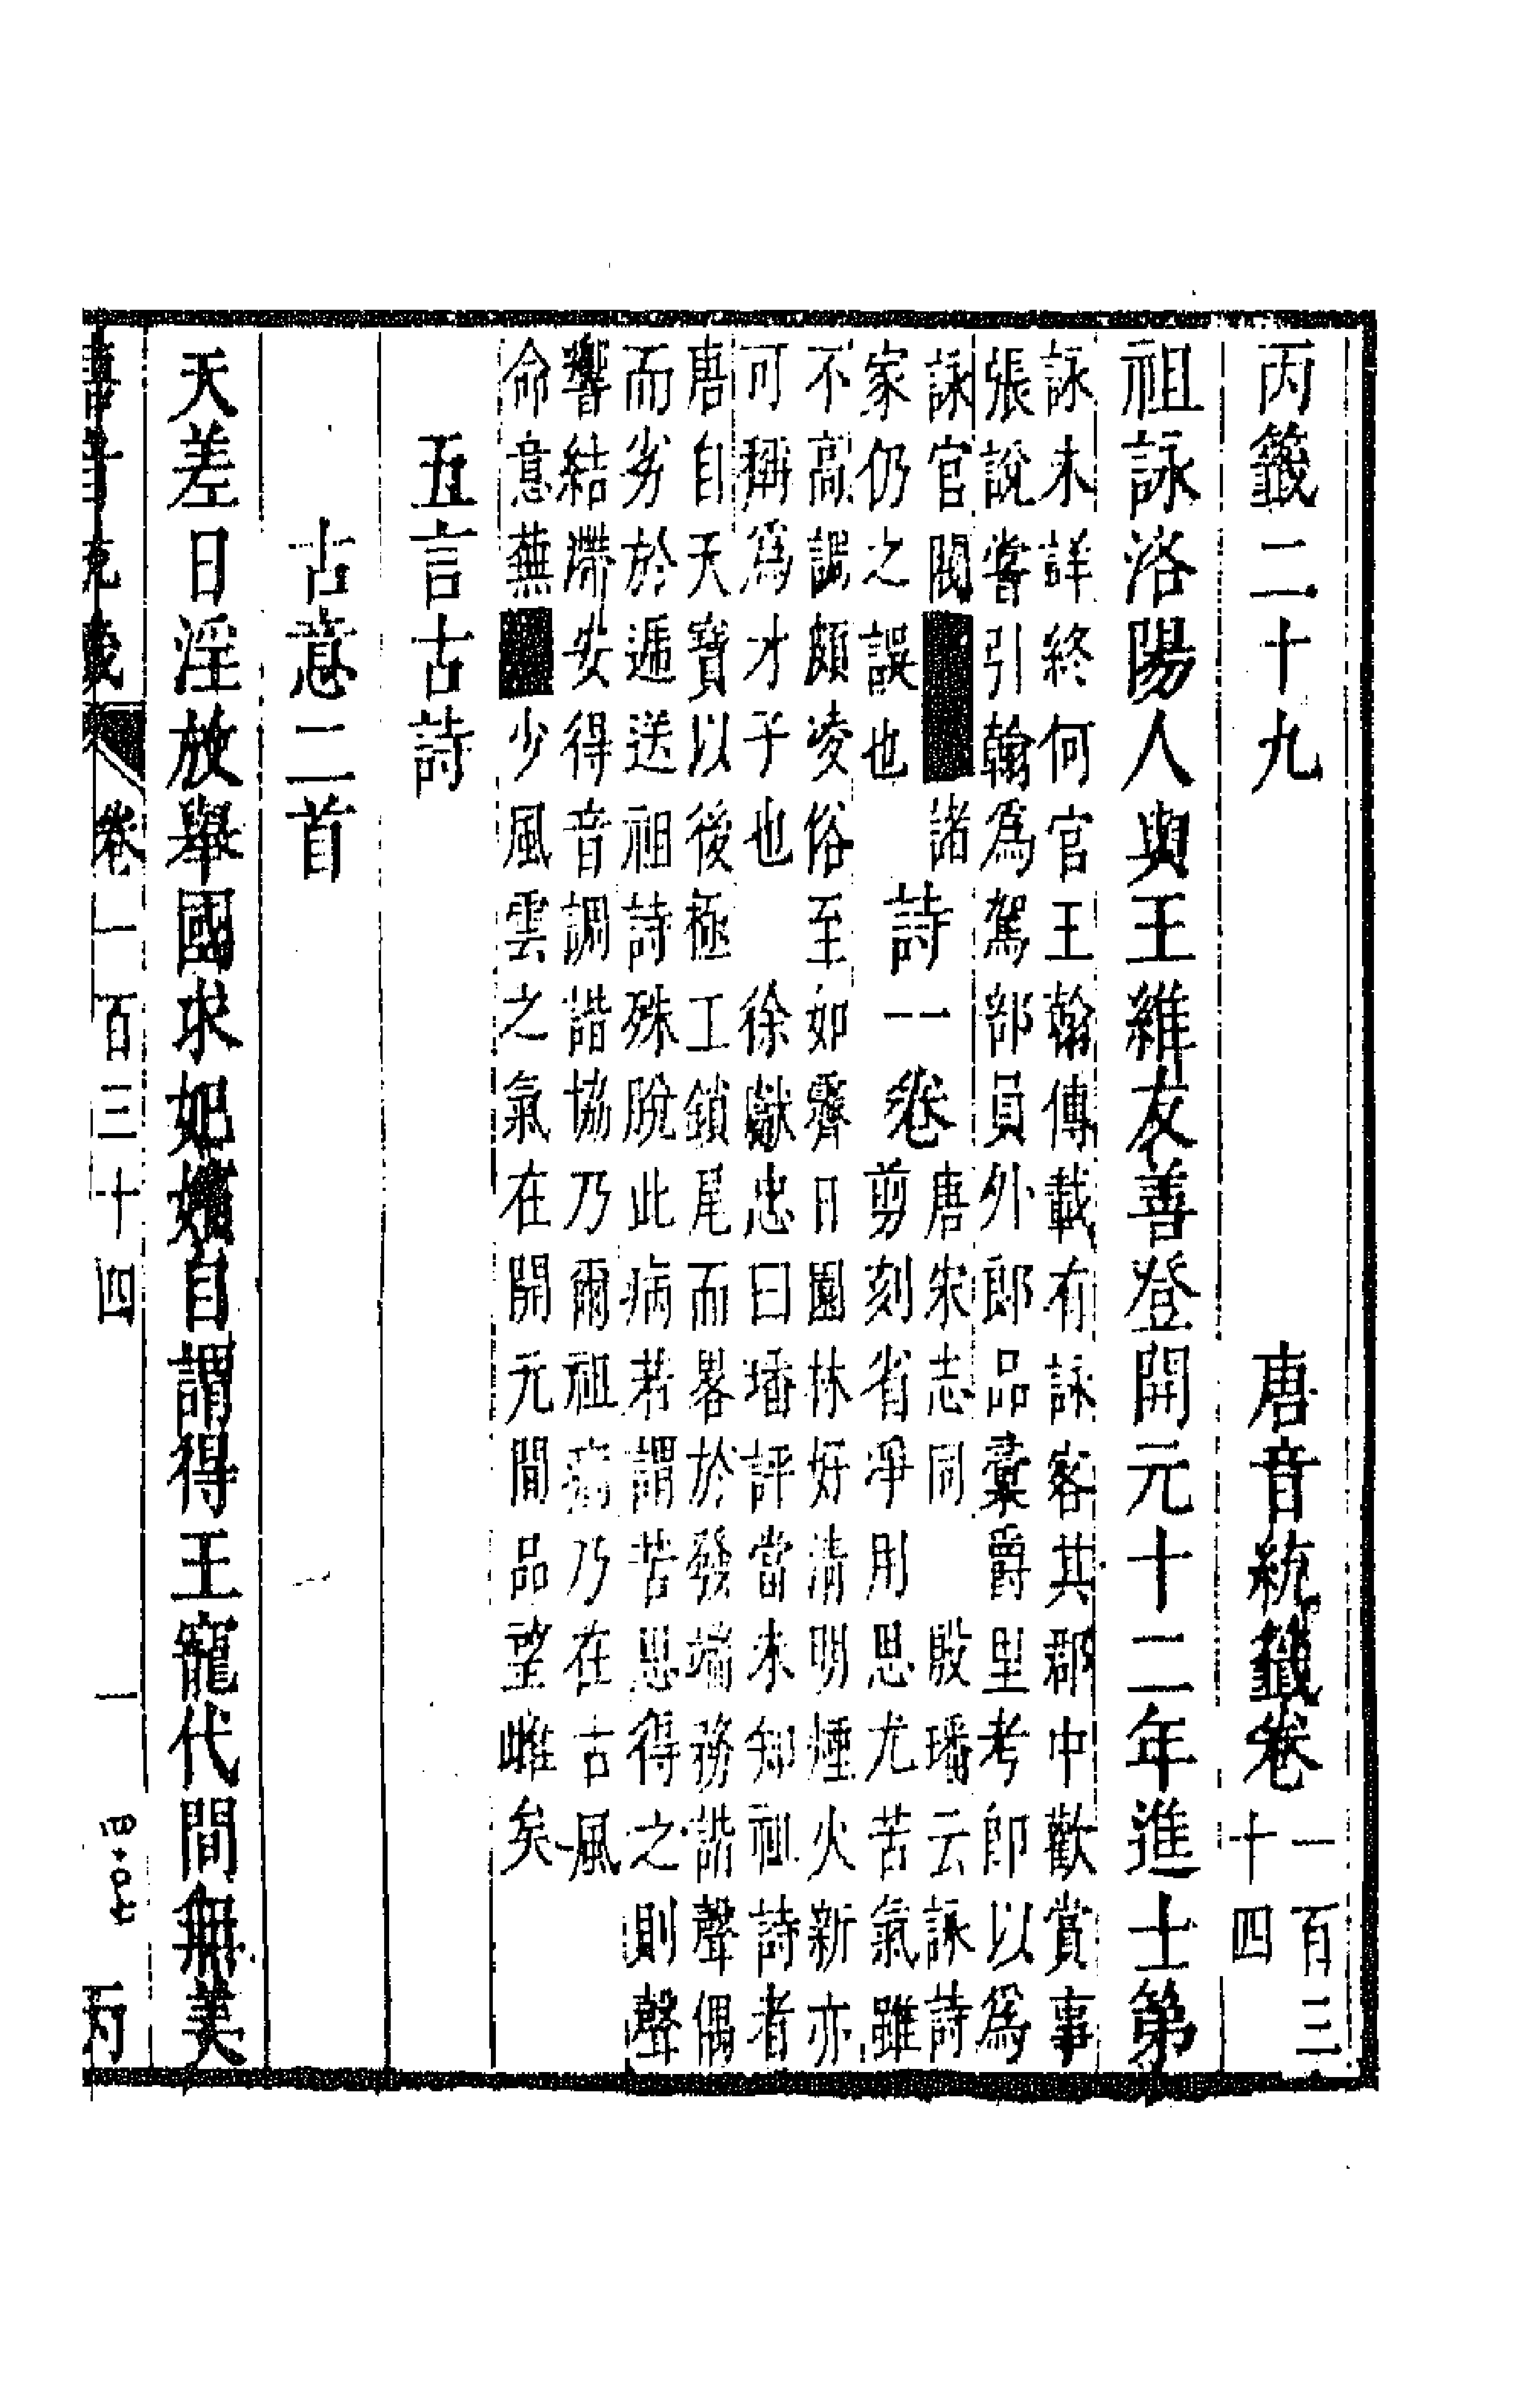 丙籤二十九　唐音統籤卷一百三十四
祖詠洛陽人與王維友善登開元十二年進士第
詠未詳終何官王翰傳載有詠客其郡中歡賞事
張說嘗引翰爲駕部員外郎品彙爵里考即以爲
詠官閥諸
家仍之誤也
詩一卷
唐宋志同　殷璠云詠詩
剪刻省凈用思尤苦氣雖
不高調頗凌俗至如霽日園林好清明煙火新亦
可稱爲才子也　徐獻忠曰璠評當未知祖詩者
唐自天寶以後極工鎖尾而畧於發端務諧聲偶
而劣於遞送祖詩殊脫此病若謂苦思得之則聲
響結滯安得音調諧協乃爾祖病乃在古風
命意蕪少風雲之氣在開元間品望雌矣
五言古詩
古意二首
夫差日淫放舉國求妃嬪自謂得王寵代間無美
卷一百三十四　一　丙